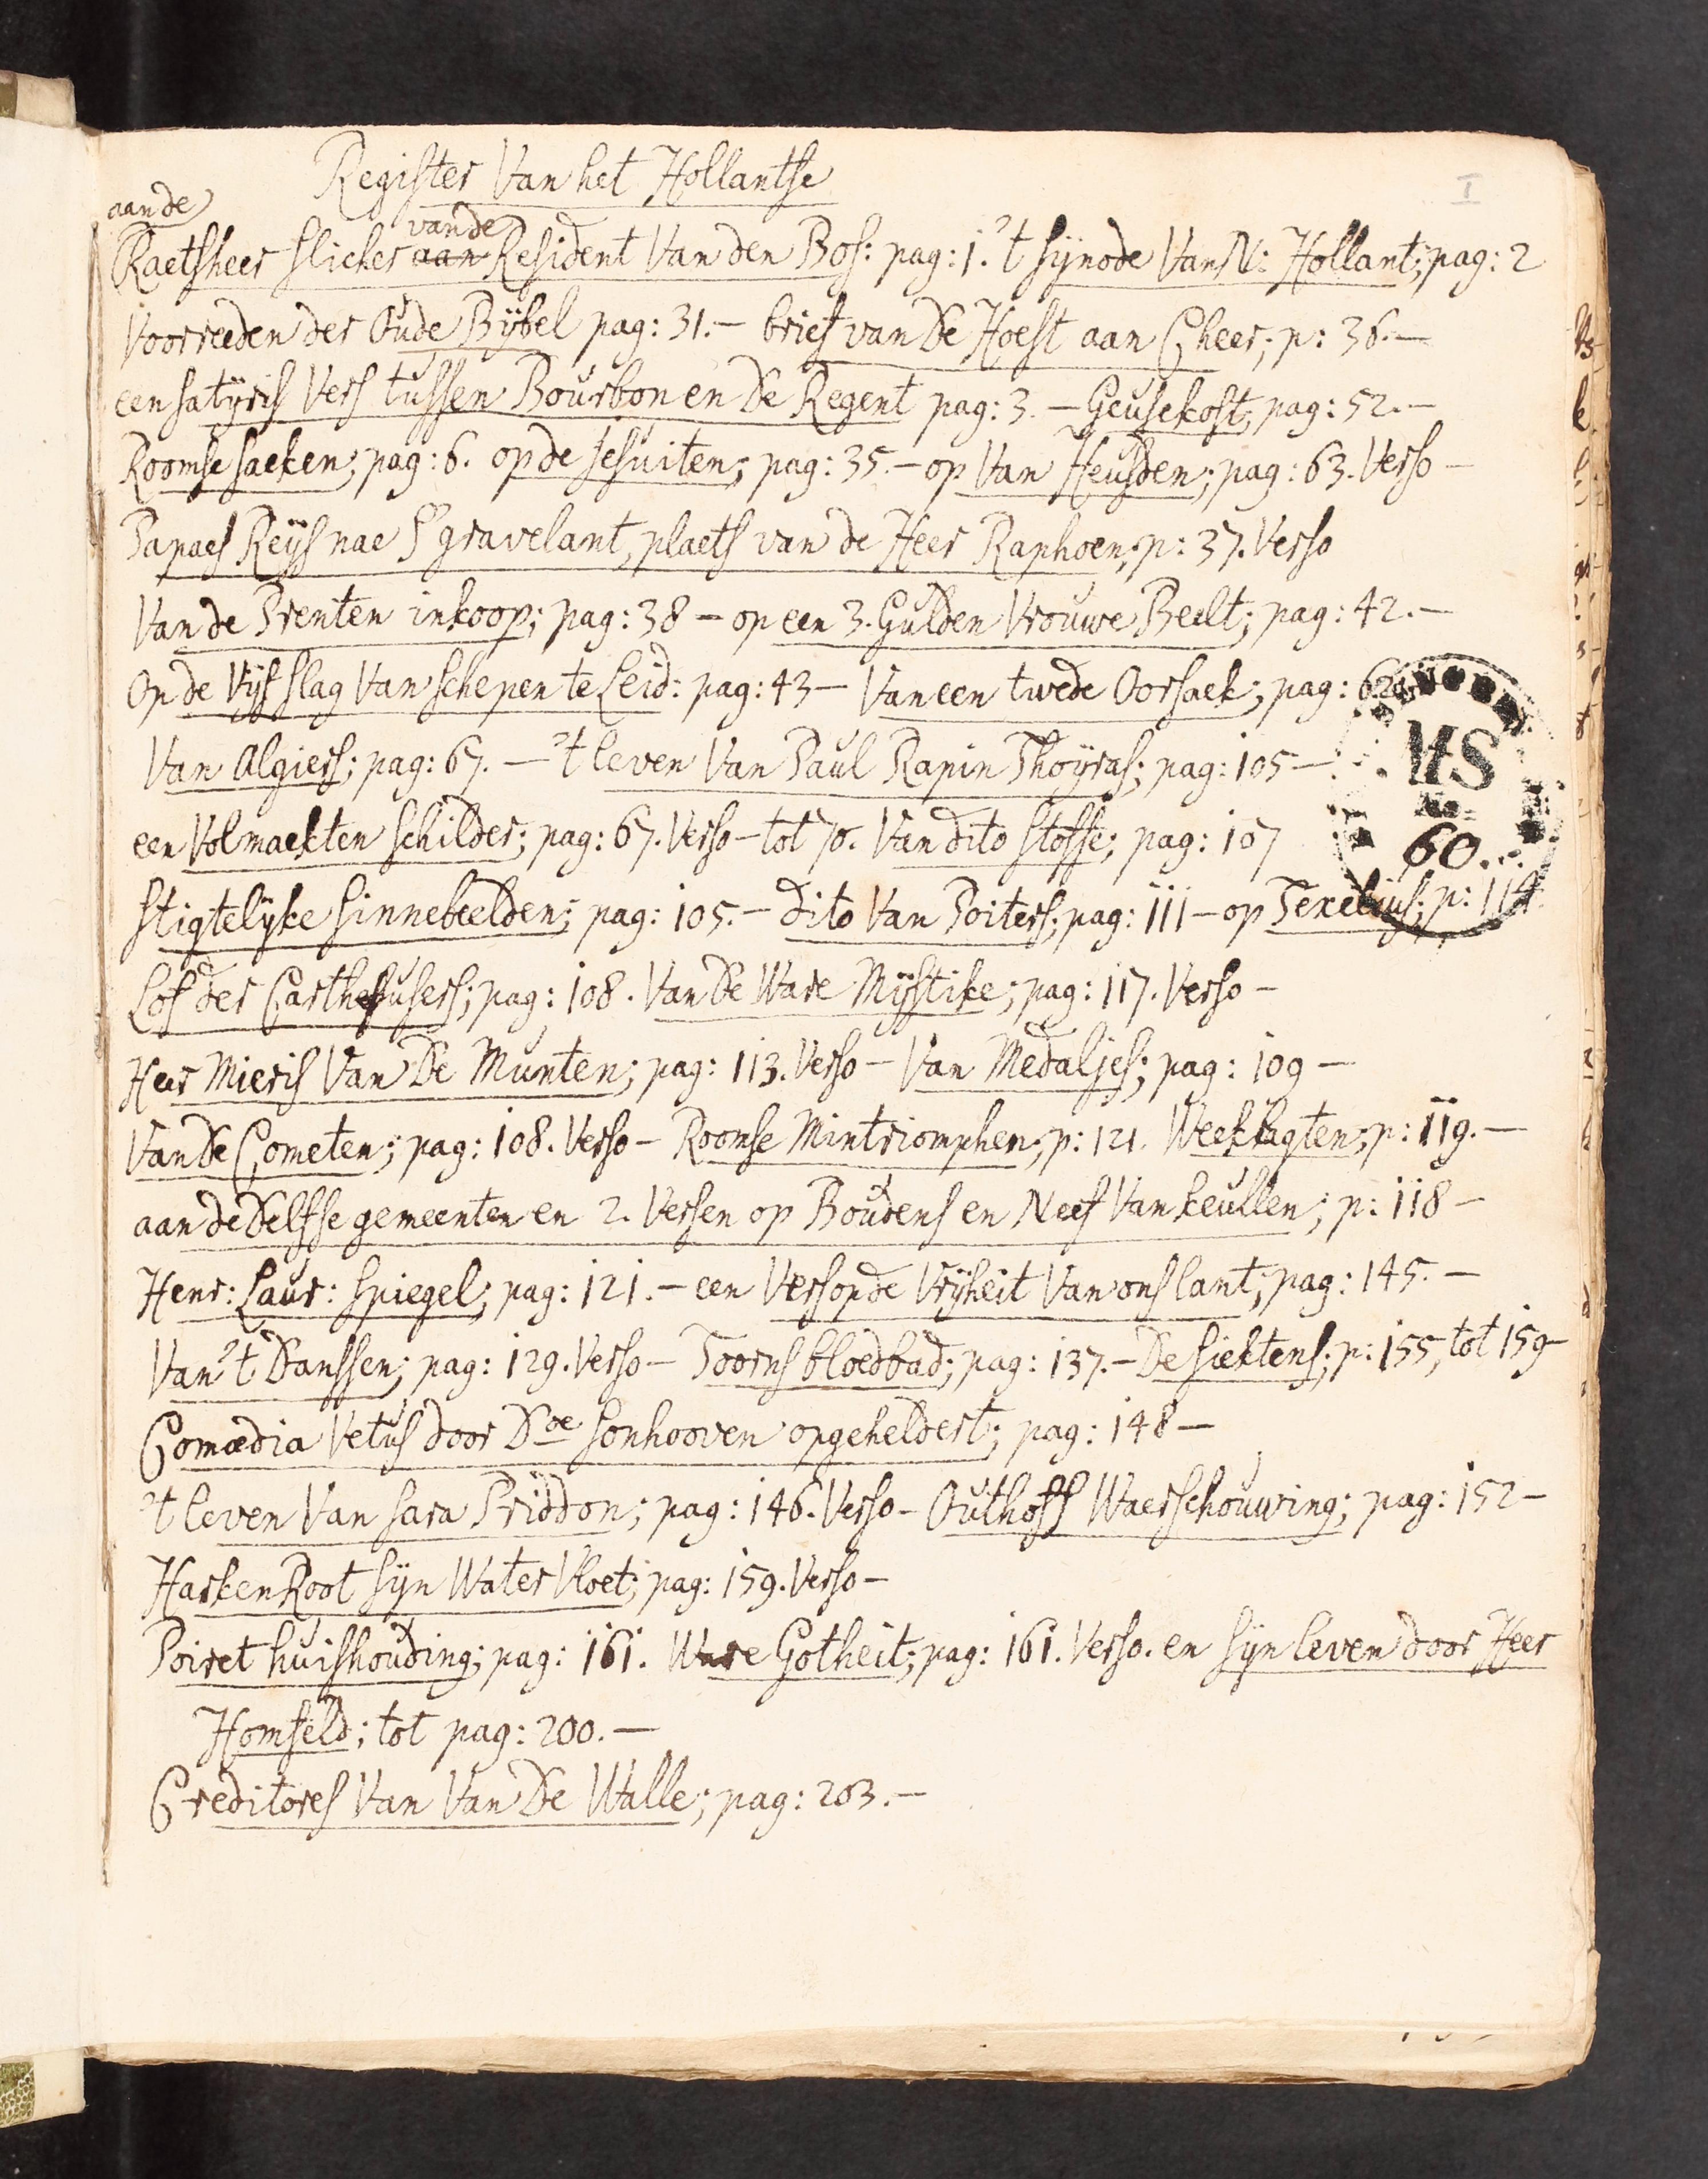 Register Van het Hollantse
I
aan de
vande
Raetsheer slicher aan Resident Van den Bos: pag: 1. 't synode Van N: Hollant; pag: 2
Voorreeden der Oude Bybel pag: 31.— brief van De Hoest aan C, heer; p: 36.—
een satyris Vers tussen Bourbon en De Regent pag: 3. — Geusekost, pag: 52.—
Roomse saeken; pag: 6. op de jesuiten; pag: 35.— op Van Heusden; pag: 63. Verso —
Papaes Reys nae S'gravelant, plaets van de Heer Raphoen; p: 37. Verso
Van de Prenten inkoop; pag: 38 — op een 3. Gulden Vrouwe Beelt; pag: 42.—
Op de Vyf slag Van schepen te Leid: pag: 43 — Van een twede Oorsaek; pag: 62
Van Algiers; pag: 67. — 't leven Van Paul Rapin Thoyras; pag: 105 —
MS
No
60.
een Volmaekten schilder; pag: 67. Verso — tot 70. Van dito stoffe; pag: 107
Stigtelyke sinnebeelden; pag: 105.— dito Van Poiters; pag: 111 — op Texelius; p: 114
Lof der Carthesusers; pag: 108. Van De Ware Mystike; pag: 117. Verso —
Heer Mieris Van De Munten; pag: 113. Verso — Van Medaljes; pag: 109 —
Van De Cometen; pag: 108. Verso — Roomse Mintriomphen; p: 121. Weeklagten; p: 119.—
aan de Delfse gemeenten en 2. Versen op Boudens en Neef Van keullen; p: 118 —
Henr: Laur: Spiegel; pag: 121.— een Vers op de Vryheit Van ons lant; pag: 145.—
Van 't Danssen; pag: 129. Verso — Toorns bloedbad; pag: 137.— De siektens; p: 155, tot 159
Comædia Vetus door Doe sonhooven opgeheldert; pag: 148 —
't leven Van sara Priddon; pag: 146. Verso — Outhoff Waerschouwing; pag: 152 —
Harkenroot syn Water Vloet; pag: 159. Verso —
Poiret huishouding; pag: 161. Ware Gotheit; pag: 161. Verso. en syn leven door Heer
Homfeld; tot pag: 200.—
Creditores Van Van De Walle; pag: 203.—